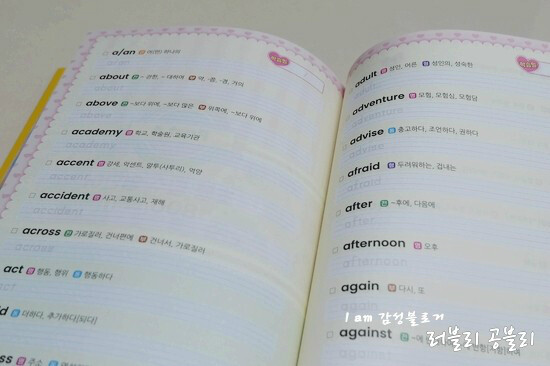 a/an 관 (어떤) 하나의
about
about 전 ~관한, ~대하여 부 약, ~쯤, ~경, 거의
about
above 전 ~보다 위에, ~보다 많은 부 위쪽에, ~보다 위에
above
academy 명 학교, 학술원, 교육기관
academy
accent 명 강세, 악센트, 말투(사투리), 억양
accent
accident 명 사고, 교통사고, 재해
accident
across 전 가로질러, 건너편에 부 건너서, 가로질러
across
act 명 행동, 행위 동 행동하다
act
더하다, 추가하다[되다]
주소
복습함
adult 명 성인, 어른 형 성인의, 성숙한
adult
adventure 명 모험, 모험심, 모험담
adventure
advise 동 충고하다, 조언하다, 권하다
advise
afraid 형 두려워하는, 겁내는
afraid
after 전 ~후에, 다음에
after
afternoon 명 오후
afternoon
again 부 다시, 또
again
against 전
I am 감성블로거
러블리 공블리